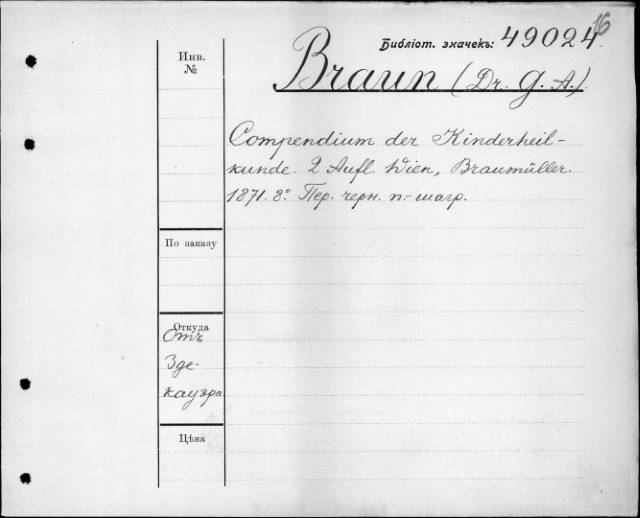 16
Библіот. значекъ: 49024.
Инв.
№
Braun (Dr. G. A.)
Compendium der Kinderheil-
kunde. 2 Aufl. Wien, Braumüller.
1871. 8°. Пер. черн. п.-шагр.
По заказу
Откуда
Отъ
Зде-
кауэра
Цѣна